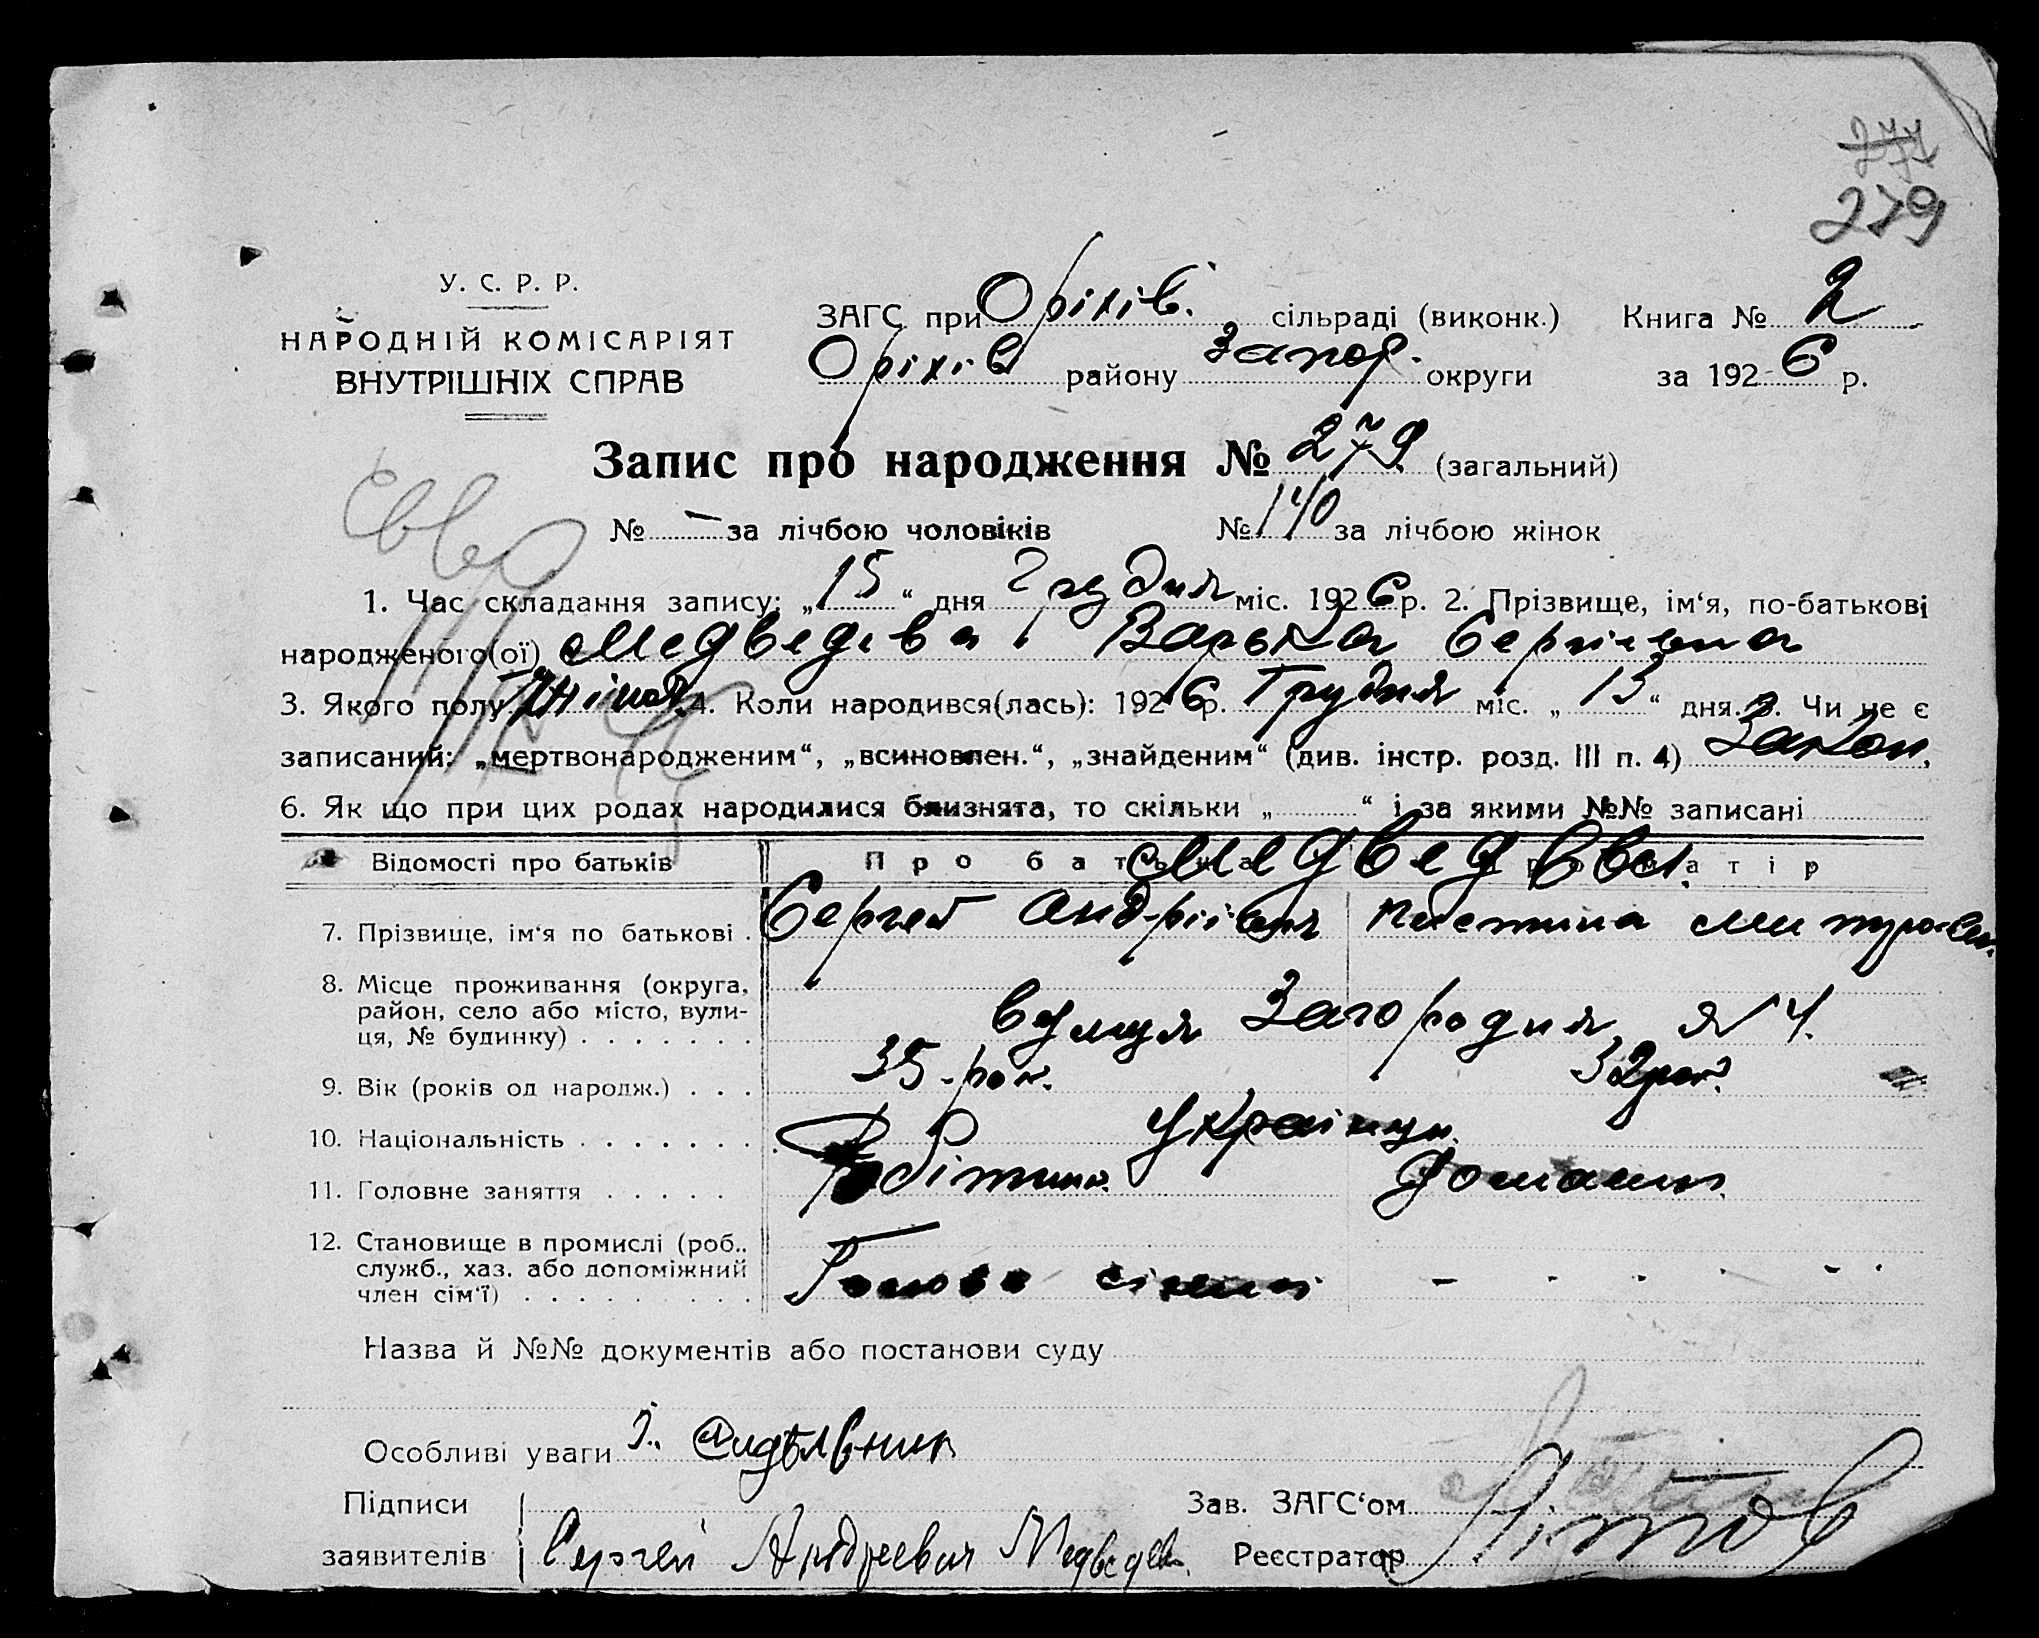 277
279
У. С. Р. Р.
НАРОДНІЙ КОМІСАРІЯТ
ВНУТРІШНІХ СПРАВ
ЗАГС при Оріхів. сільраді (виконк.) Книга № 2
Оріхів району Запор. округи за 1926 р.
Запис про народження № 279 (загальний)
№ – за лічбою чоловіків № 140 за лічбою жінок
1. Час складання запису: „15“ дня Грудня міс. 1926 р. 2. Прізвище, ім‘я, по-батькові
народженого(ої) Медведева Варька Сергіевна
3. Якого полу Жіноч. 4. Коли народився(лась): 1926 р. Грудня міс. „13“ дня. 5. Чи не є
записаний: „мертвонародженим“, „всиновлен.“, „знайденим“ (див. інстр. розд. III п. 4) Закон.
6. Як що при цих родах народилися близнята, то скільки „ “ і за якими №№ записані
Відомості про батьків Про батька Про матір
Медведеви.
7. Прізвище, ім‘я по батькові . Сергей Андріївич
8. Місце проживання (округа,
район, село або місто, вули-
ця, № будинку) . . . . . . . вулиця Загородня № 4.
9. Вік (років од народж.) . . . 35 рок. 32 рок.
10. Національність . . . . . . . Українци.
11. Головне заняття . . . . . Робітник. Домашн.
12. Становище в промислі (роб.,
служб., хаз. або допоміжний
член сім‘ї) . . . . . . . . . Голова сімьи – - - - - -
Назва й №№ документів або постанови суду
Особливі уваги
Підписи Зав. ЗАГС‘ом
заявителів Сергей Андреевич Медведев. Реєстратор